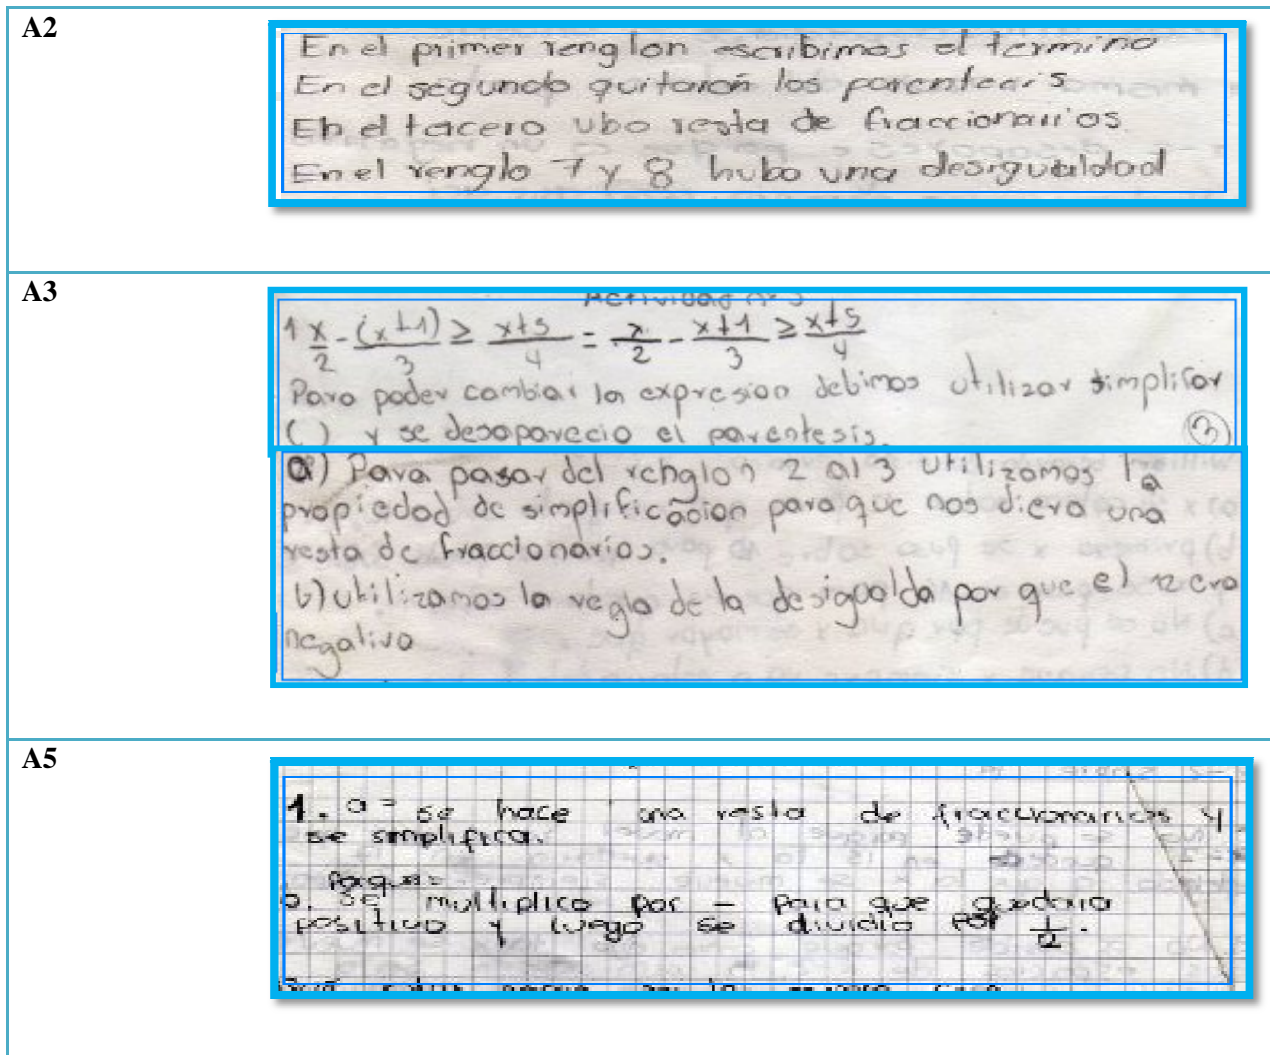 A2
En el primer renglon escribimos el termino
En el segundo quitaron los parentecis
En el tacero ubo resta de fraccionarios
En el renglo 7 y 8 hubo una desigualdad
A3
Actividad nº 3
1 x/2 - (x+1)/3 ≥ x+5/4 = x/2 - x+1/3 ≥ x+5/4
Para poder cambiar la expresion debimos utilizar simplificar
( ) y se desaparecio el parentesis. 3
a) Para pasar del renglon 2 al 3 utilizamos la
propiedad de simplificacion para que nos diera una
resta de fraccionarios.
b) utilizamos la regla de la desigualda por que el 12 era
negativo
A5
1. a = se hace una resta de fraccionarios y
se simplifica.
Porque =
b. se multiplico por - para que quedara
positivo y luego se dividio por 1/2.